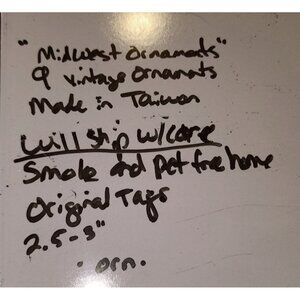 "Midwest Ornaments"
9 vintage Ornaments
Made in Taiwan
will ship w/care
Smoke and pet free home
Original Tags
2.5-3"
. orn.